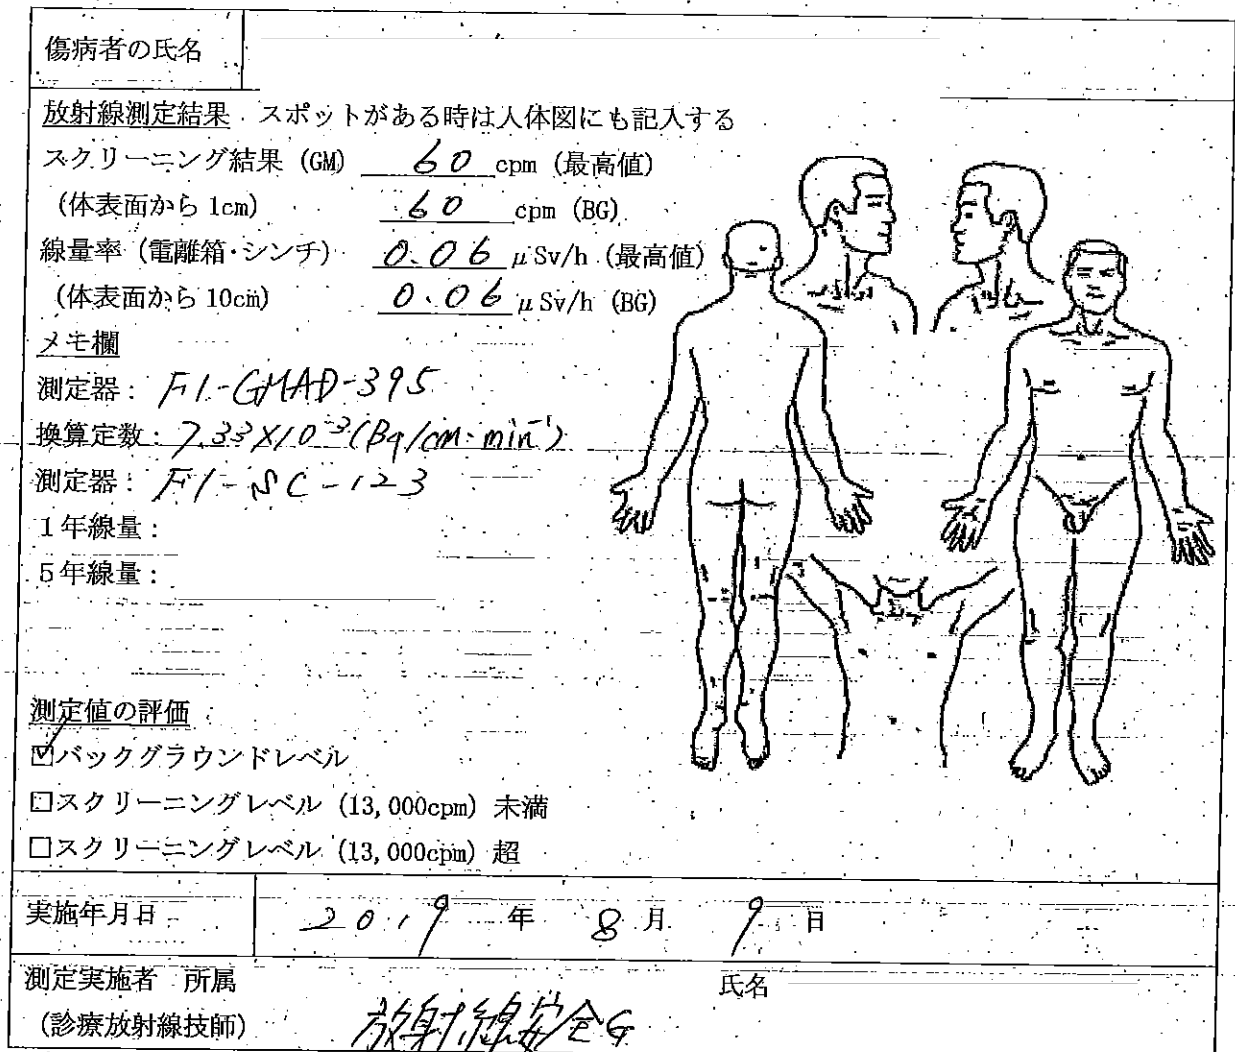 傷病者の氏名
放射線測定結果 スポットがある時は人体図にも記入する
スクリーニング結果 (GM) 60 cpm (最高値)
(体表面から 1cm) 60 cpm (BG)
線量率 (電離箱・シンチ) 0.06 μSv/h (最高値)
(体表面から 10cm) 0.06 μSv/h (BG)
メモ欄
測定器: F1-GMAD-395
換算定数: 7.33×10⁻³(Bq/cm・min⁻¹)
測定器: F1-SC-123
1年線量:
5年線量:
測定値の評価
☑バックグラウンドレベル
□スクリーニングレベル (13,000cpm) 未満
□スクリーニングレベル (13,000cpm) 超
実施年月日 2019 年 8 月 9 日
測定実施者 所属 氏名
(診療放射線技師) 放射線安全G